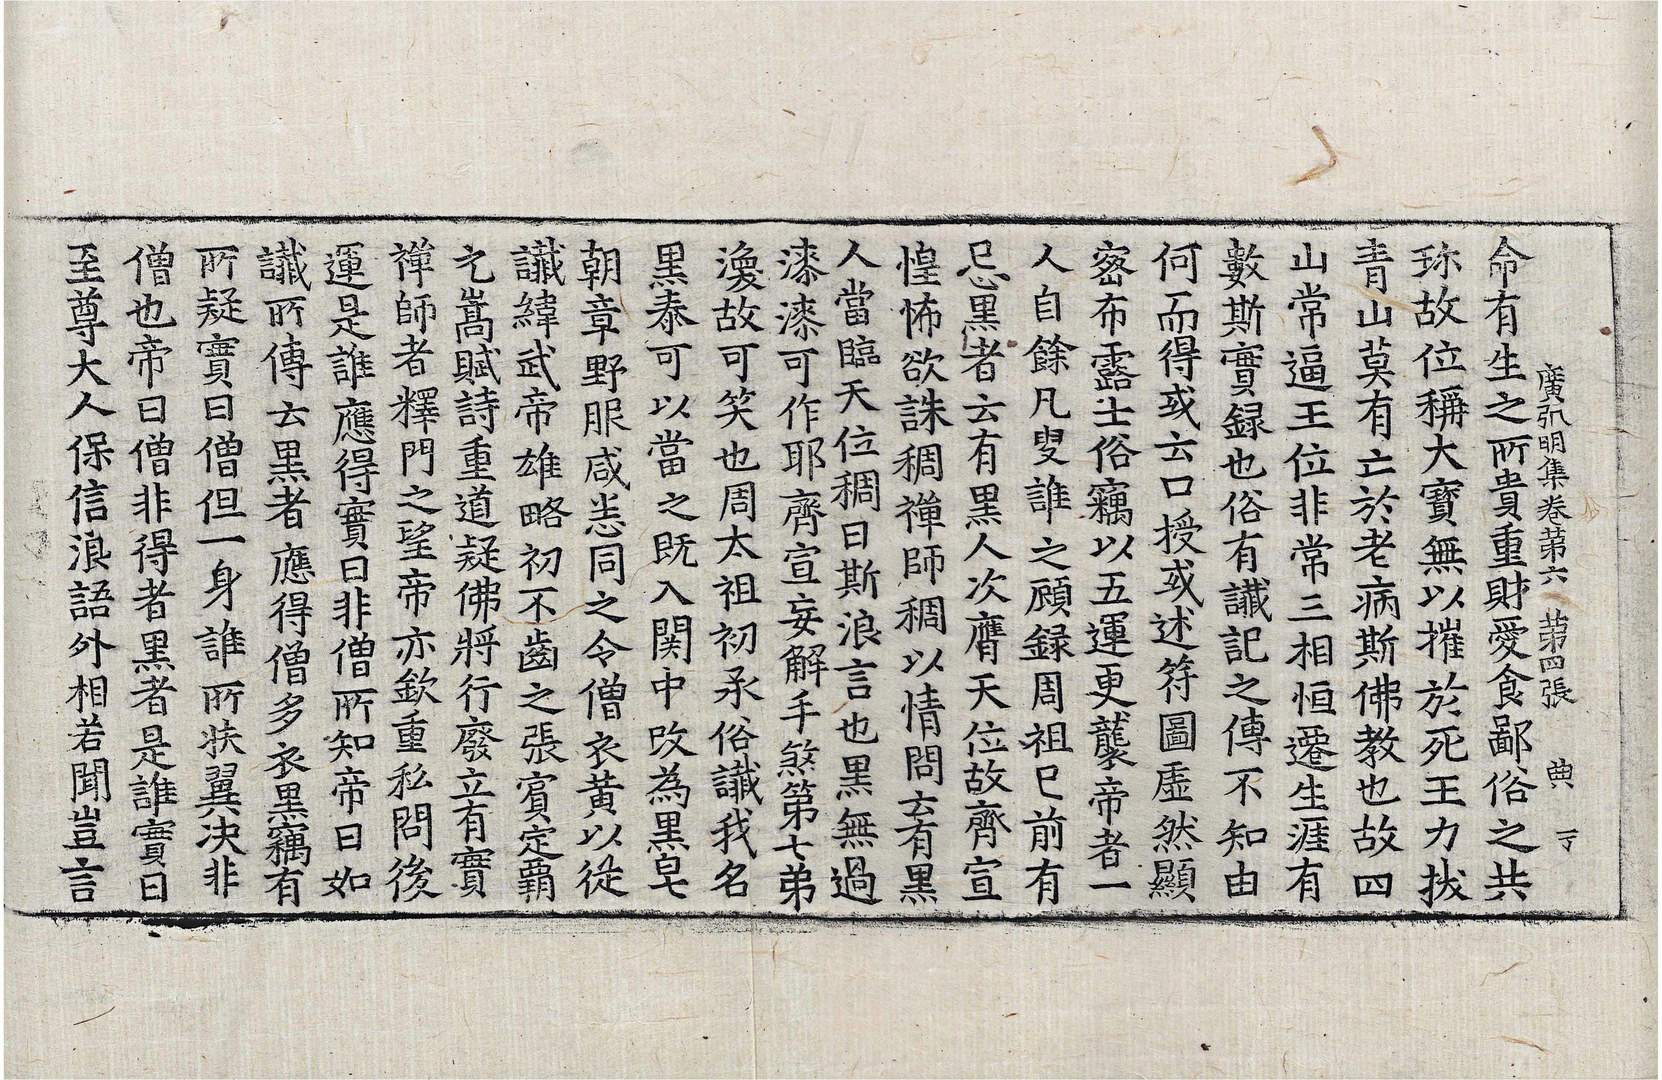 廣弘明集卷第六 第四張 典 丁
命有生之所貴重財愛食鄙俗之共
珎故位稱大寶無以摧於死王力拔
青山莫有亡於老病斯佛教也故四
山常逼王位非常三相恒遷生涯有
數斯實録也俗有讖記之傳不知由
何而得或云口授或述符圖虛然顯
密布露士俗竊以五運更襲帝者一
人自餘凡叟誰之顧録周祖已前有
忌黑者云有黑人次膺天位故齊宣
惶怖欲誅稠禪師稠以情問云有黑
人當臨天位稠曰斯浪言也黑無過
漆漆可作耶齊宣妄解手煞第七弟
渙故可笑也周太祖初承俗讖我名
黑泰可以當之既入関中改為黑皂
朝章野服咸悉同之令僧衣黃以從
讖緯武帝雄略初不齒之張賓定霸
元嵩賦詩重道疑佛將行廢立有實
禪師者釋門之望帝亦欽重私問後
運是誰應得實曰非僧所知帝曰如
讖所傳云黑者應得僧多衣黑竊有
所疑實曰僧但一身誰所扶翼決非
僧也帝曰僧非得者黑者是誰實曰
至尊大人保信浪語外相若聞豈言